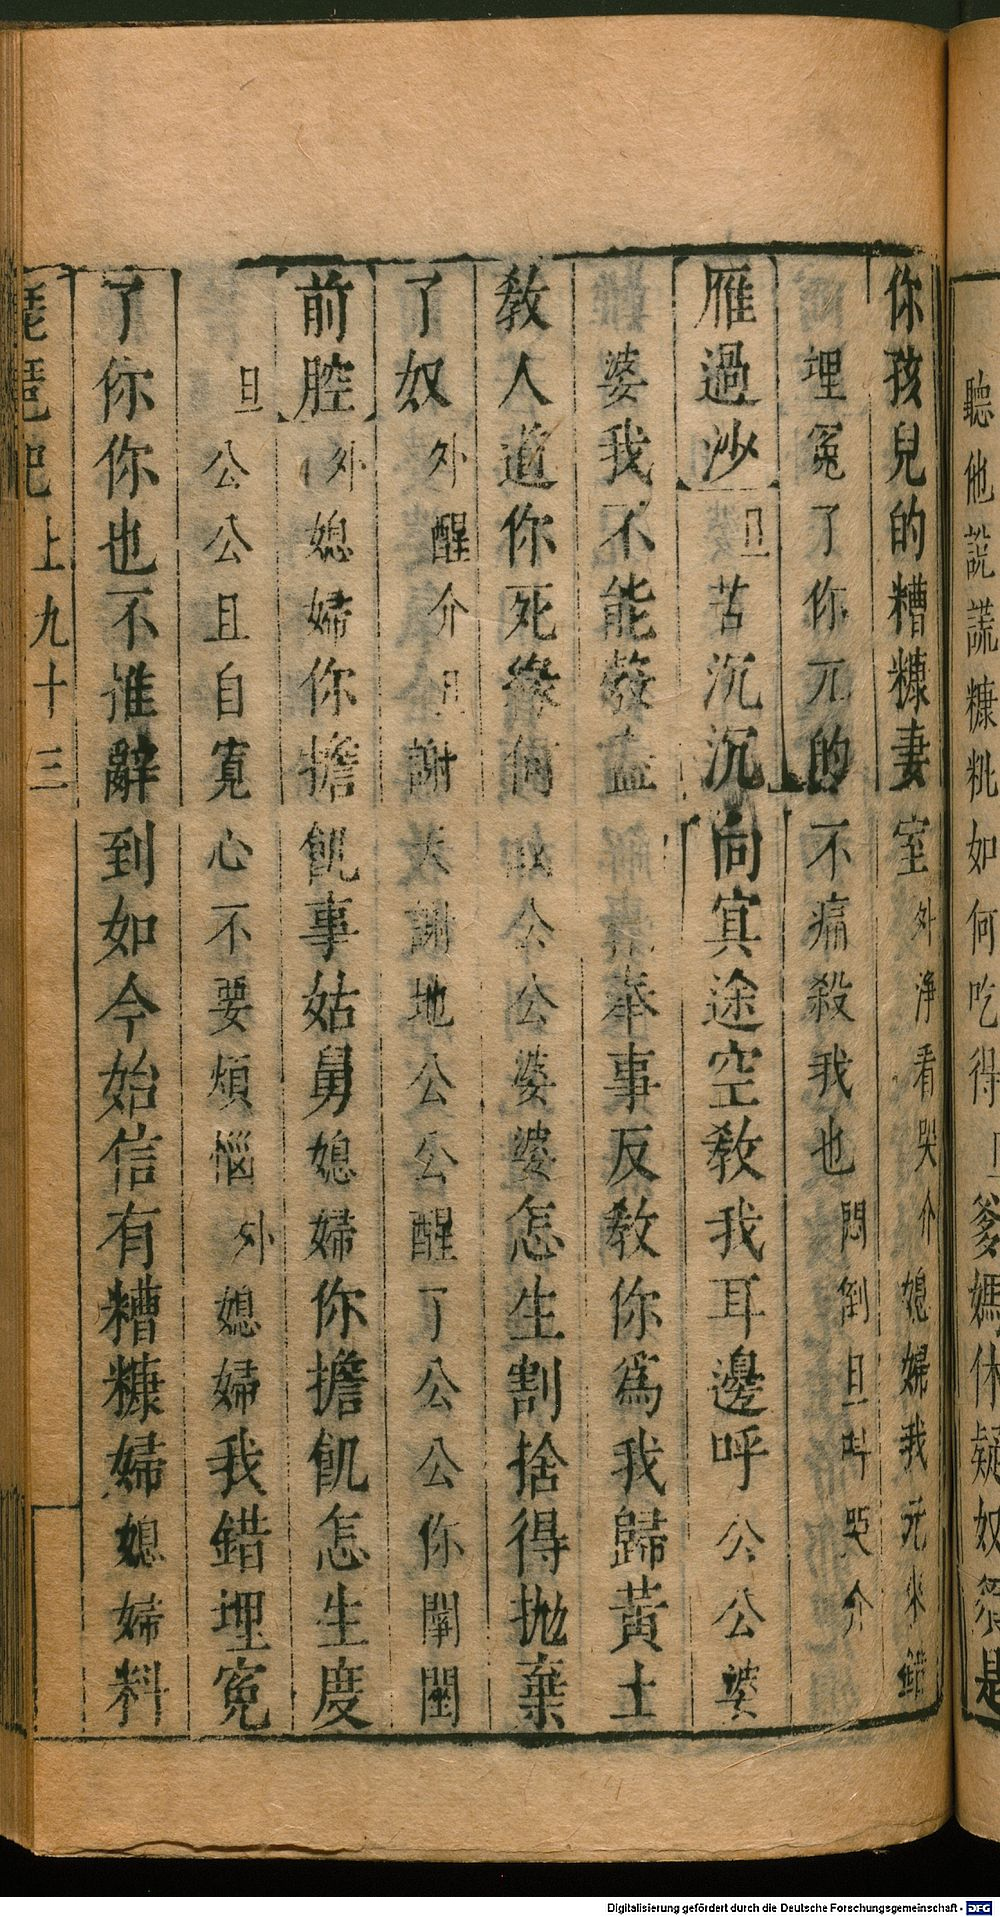 聽他說謊糠粃如何吃得 旦 爹媽休疑奴須是
你孩兒的糟糠妻室 外淨看哭介 媳婦我元來錯
埋冤了你兀的不痛殺我也 悶倒旦叫哭介
雁過沙 旦 苦沉沉向㝠途空教我耳邊呼公公婆
婆我不能彀盡 奉事反教你爲我歸黃土
教人道你死緣何故公公婆婆怎生割捨得抛棄
了奴 外醒介 旦 謝天謝地公公醒了公公你闡闥
前腔 外 媳婦你擔飢事姑舅媳婦你擔飢怎生度
旦 公公且自寛心不要煩惱 外 媳婦我錯埋冤
了你你也不推辭到如今始信有糟糠婦媳婦料
琵琶记 上 九十三
Digitalisierung gefördert durch die Deutsche Forschungsgemeinschaft - DFG